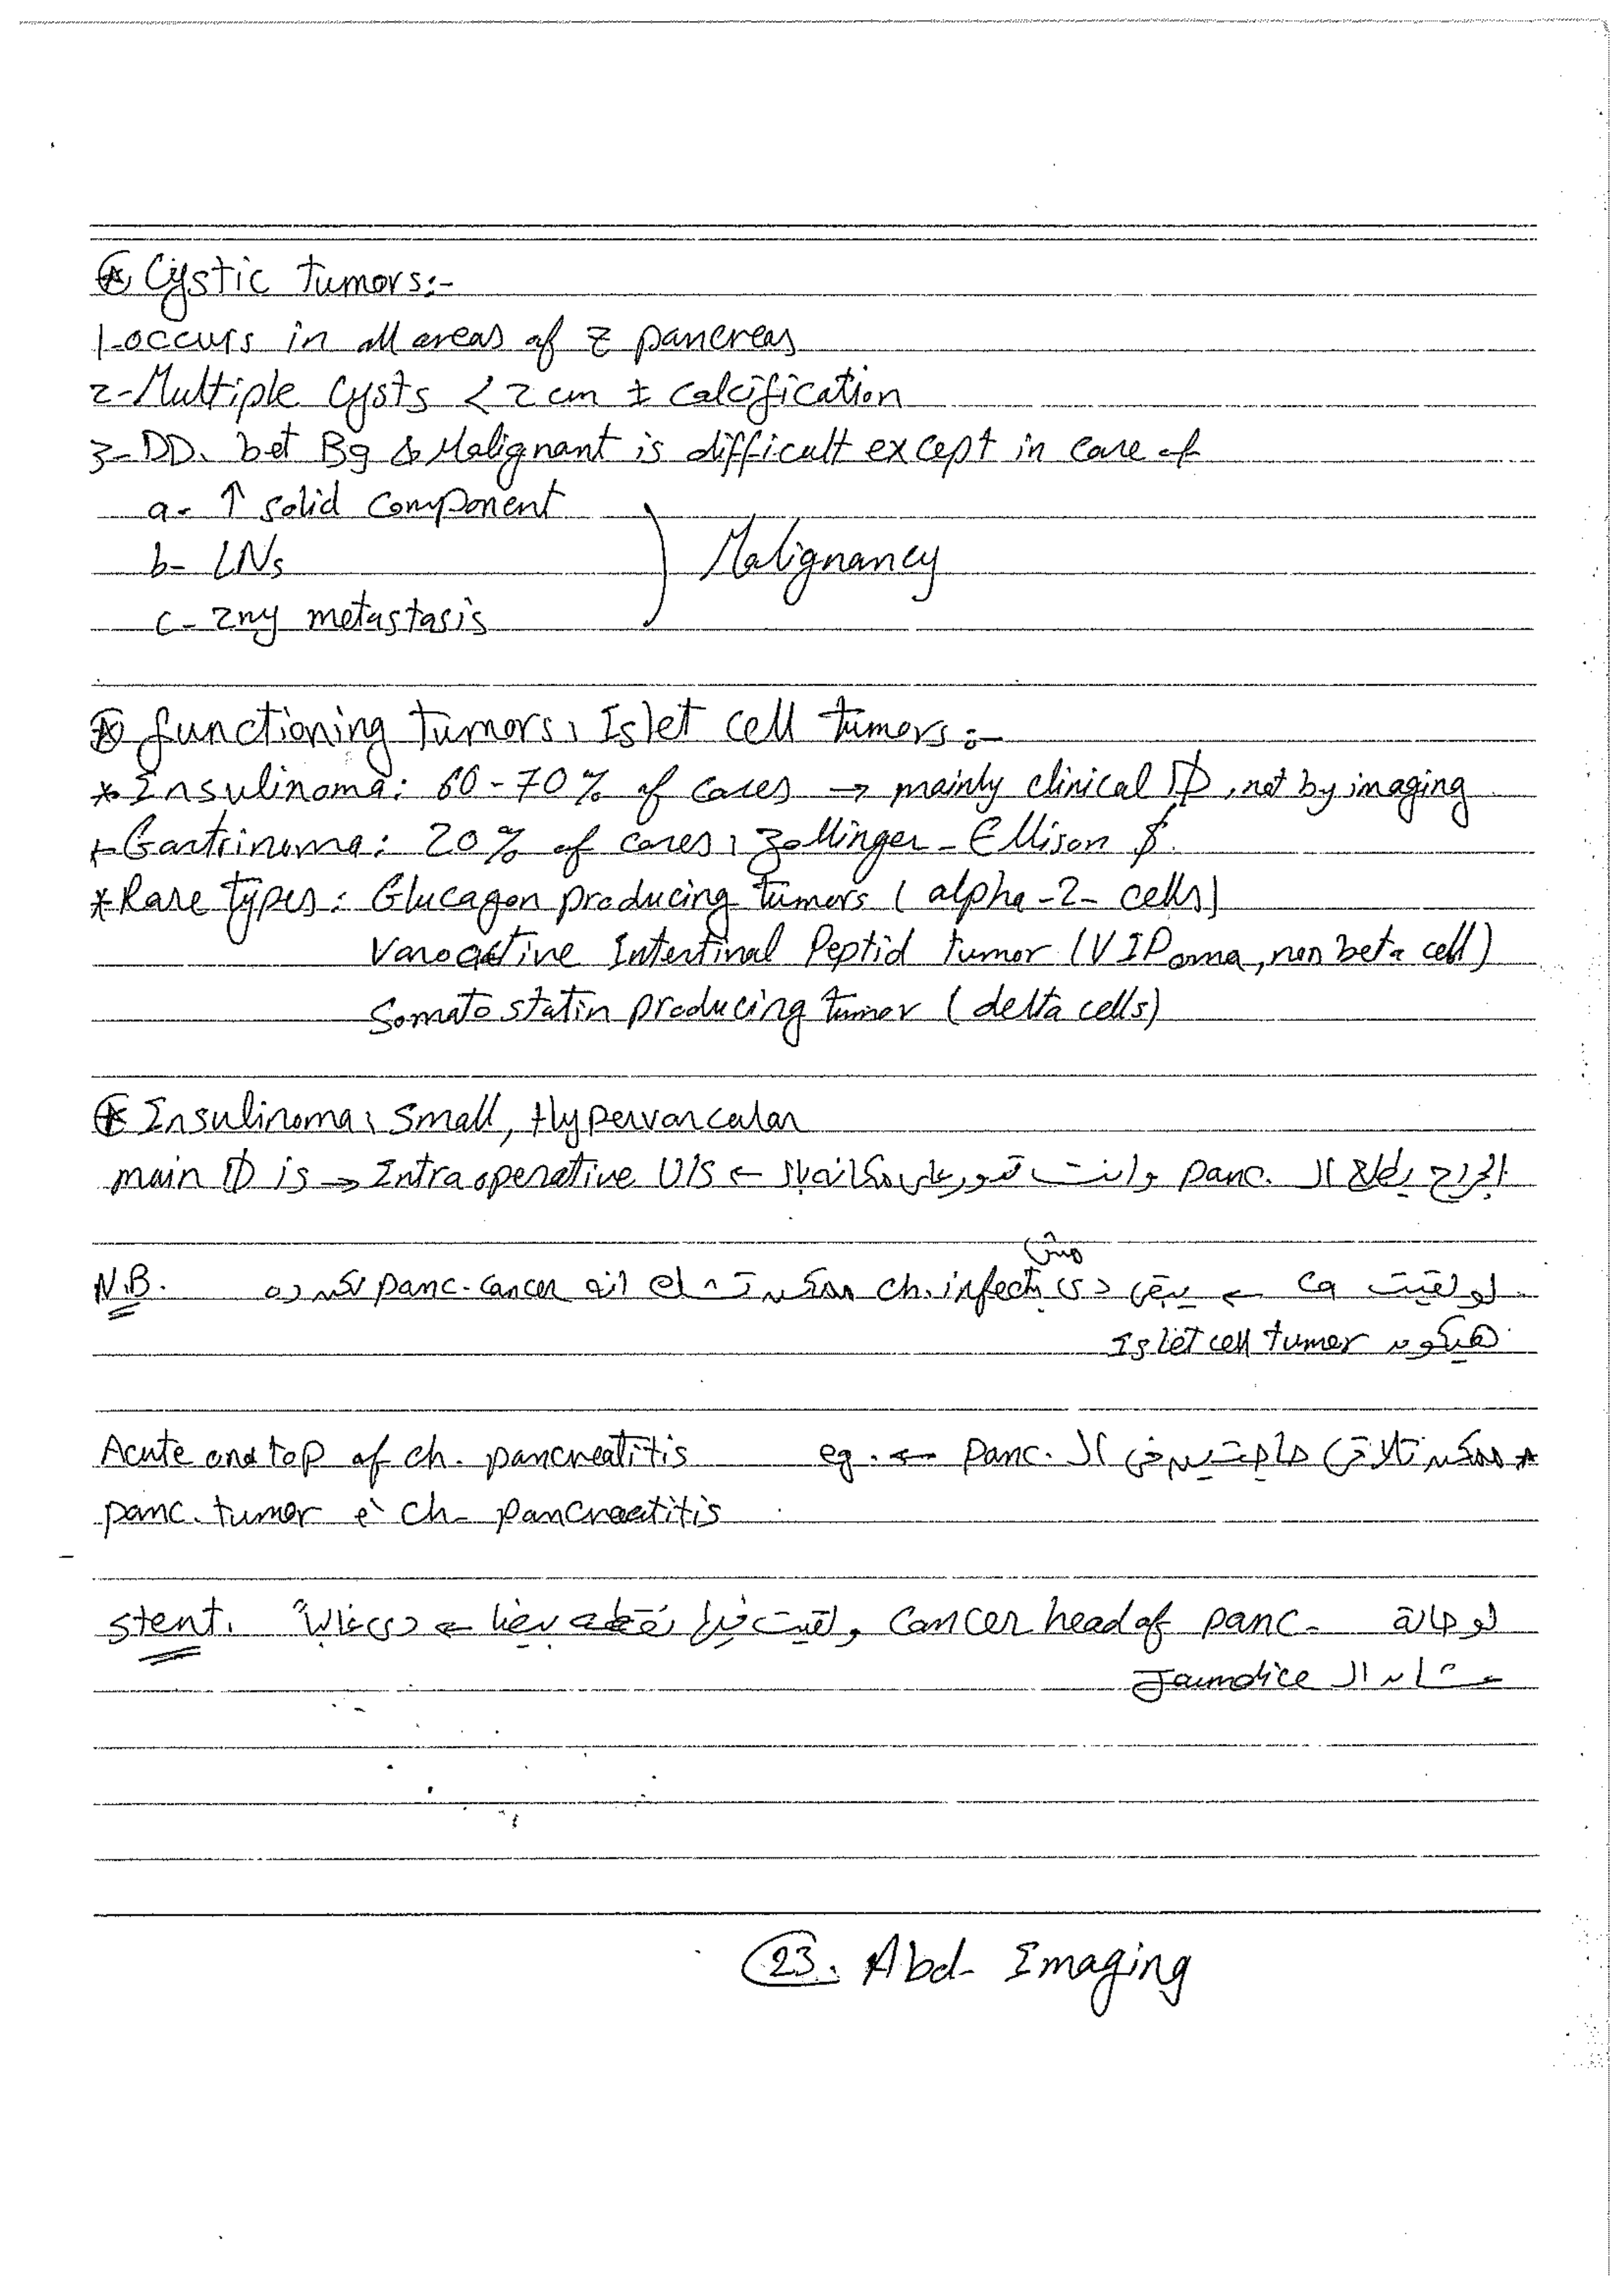 ⊛ Cystic Tumors:-
1-occurs in all areas of z pancreas
2-Multiple Cysts < 2 cm ± calcification
3-DD. bet Bg & Malignant is difficult except in case of
a- ↑ solid component
b- LNs
c- 2ny metastasis
Malignancy
⊛ functioning tumors, Islet cell tumors:-
* Insulinoma: 60-70% of cases → mainly clinical D, not by imaging
* Gastrinoma: 20% of cases, Zollinger-Ellison $.
* Rare Types: Glucagon producing tumors (alpha-2-cells)
Vasoactive Intestinal Peptid tumor (VIPoma, non beta cell)
Somatostatin producing tumor (delta cells)
⊛ Insulinoma, Small, Hypervascular
main D is → Intraoperative U/S ← الجراح يطلع ال panc. وانت تدور على مكانها
N.B. لو لقيت Ca ← يبقى دى مش ch. infectn ممكن انه panc. cancer لكن ده
هيكون Islet cell tumor
* ممكن تلاقى حاجتين فى ال panc. ← eg. Acute on top of ch. pancreatitis
panc. tumor è ch. pancreatitis
لو حالة cancer head of panc. ولقيت فيها نقطة بيضا ← دى غالباً stent.
عشان ال Jaundice
23. Abd- Imaging